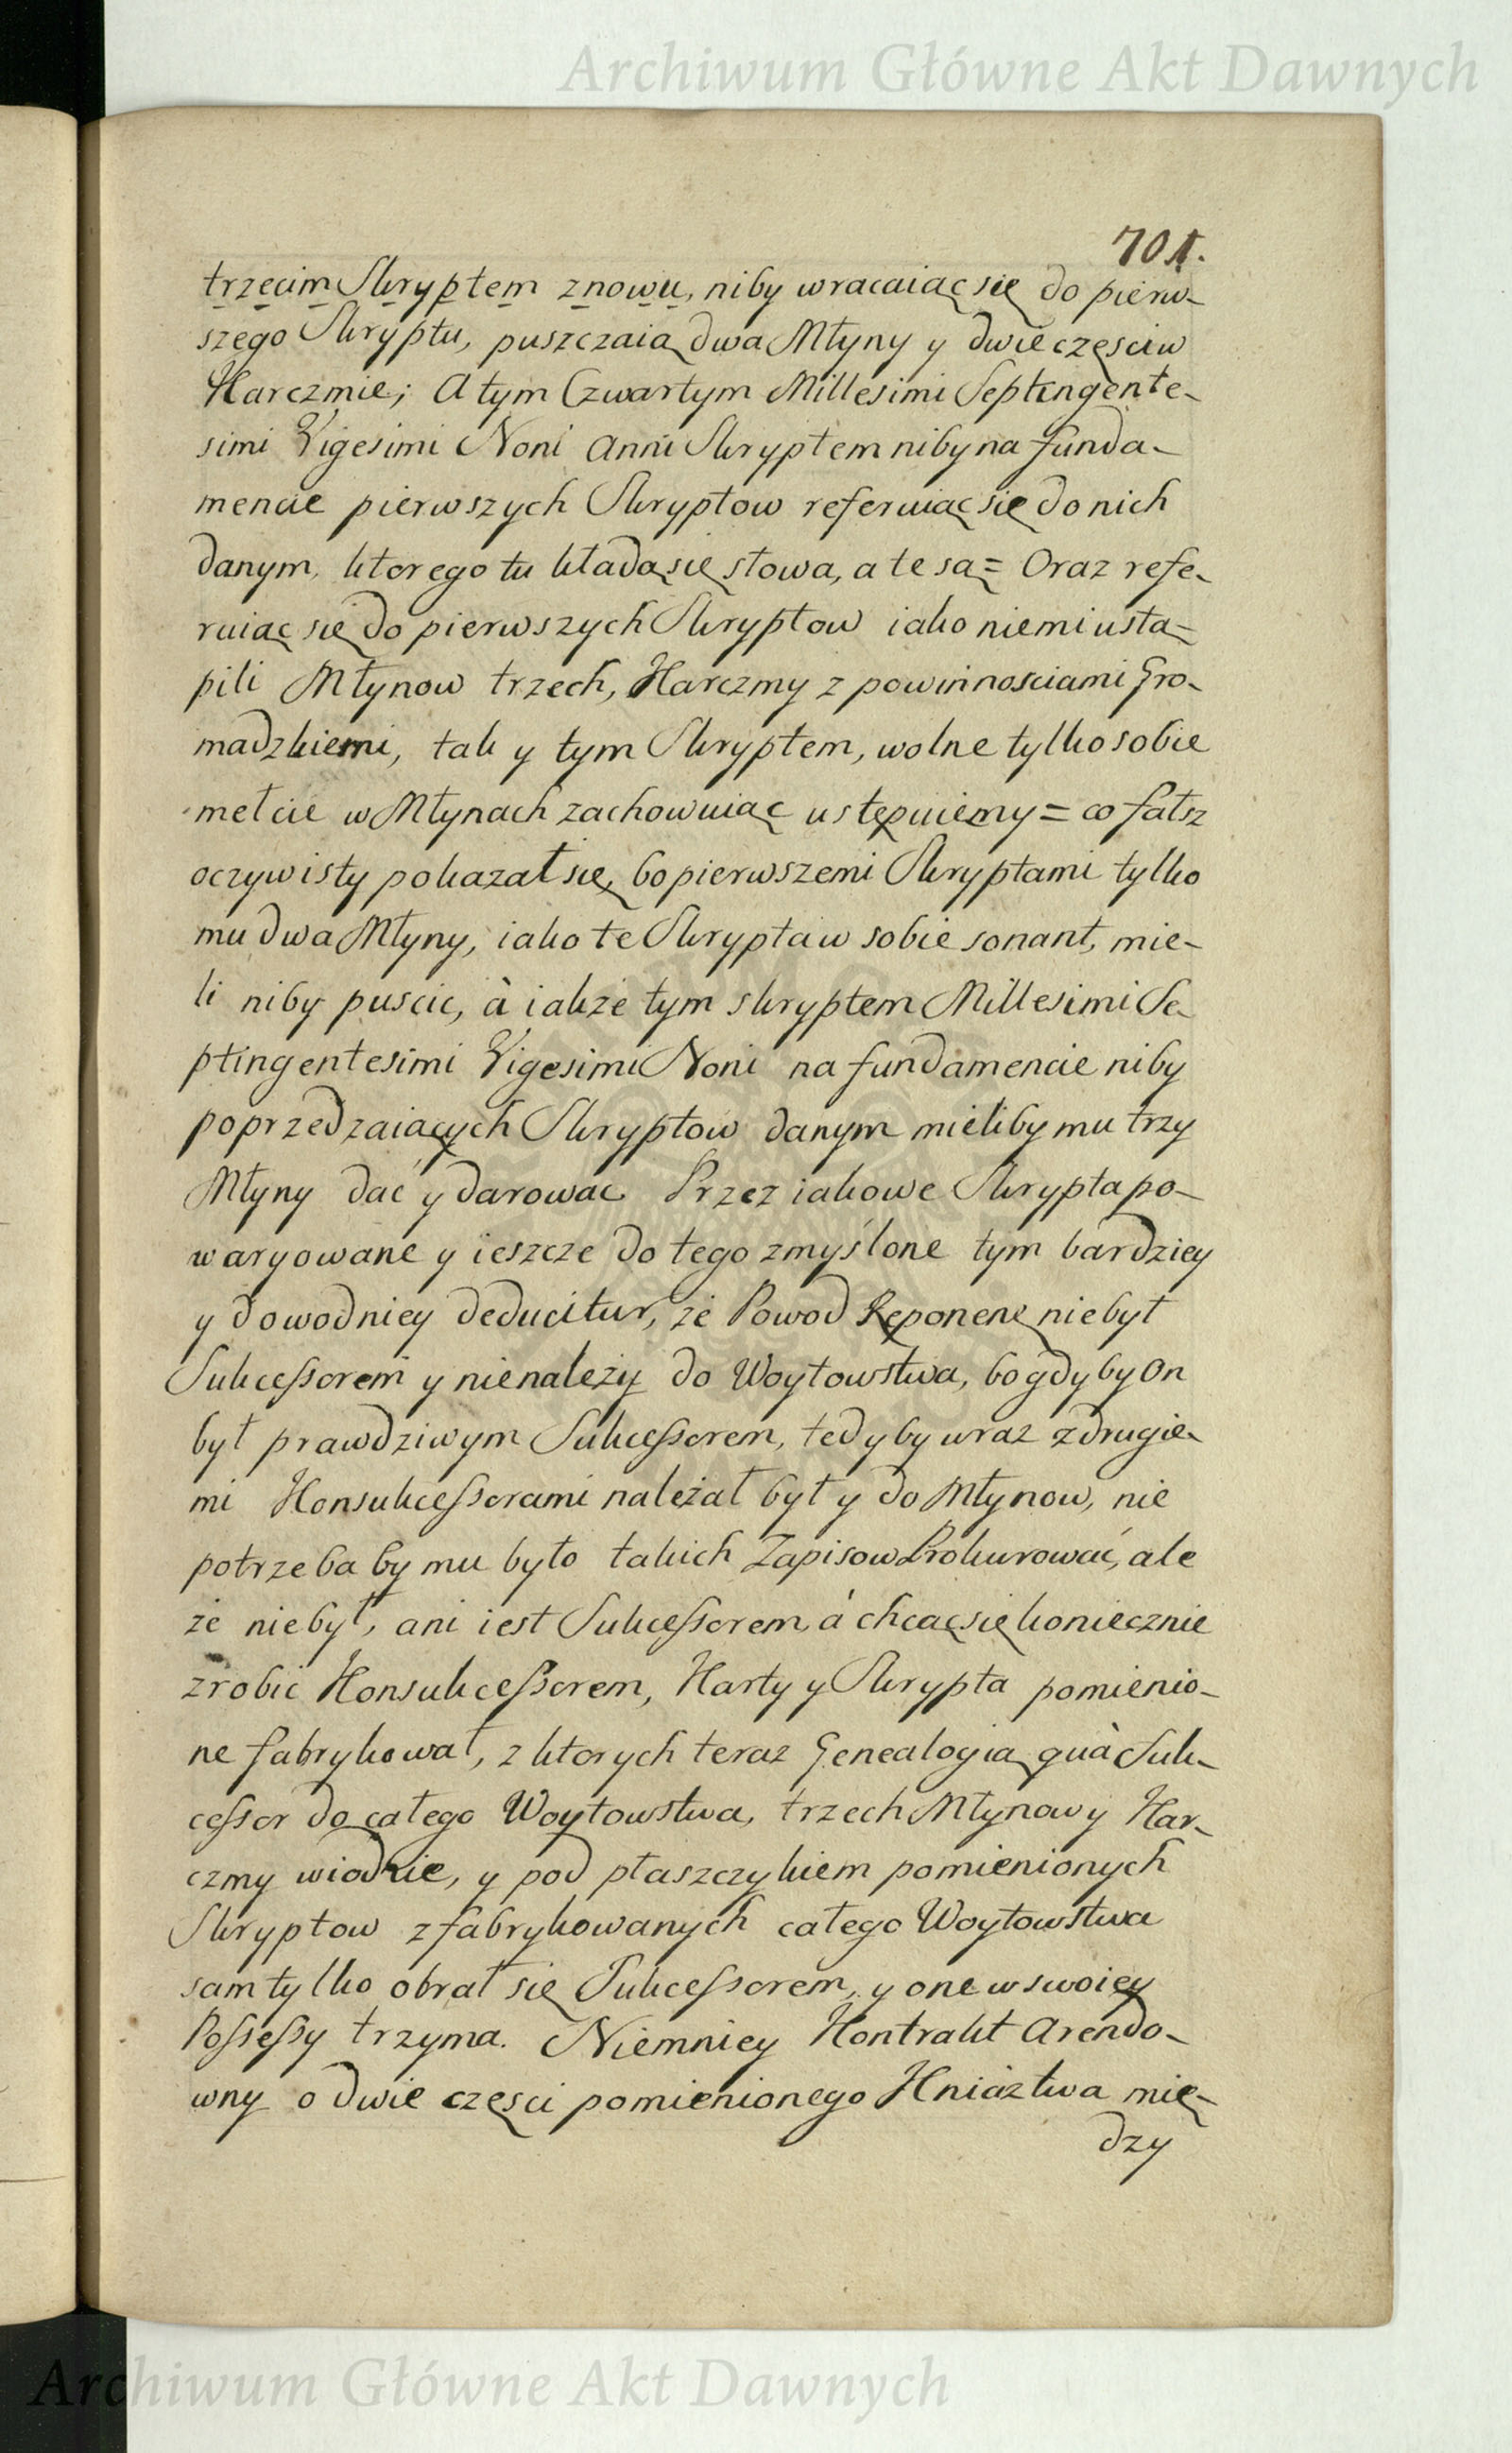 Archiwum Główne Akt Dawnych
701.
trzecim Skryptem znowu, niby wracaiąc się do pierw-
szego Skryptu, puszczaią dwa Młyny y dwie częsci w
Karczmie; A tym Czwartym Millesimi Septingente-
simi Vigesimi Noni Anni Skryptem niby na funda-
mencie pierwszych Skryptow referuiąc się do nich
danym, ktorego tu kładą się słowa, a te są = Oraz refe-
ruiąc się do pierwszych Skryptow iako niemi ustą-
pili Młynow trzech, Karczmy z powinnosciami Gro-
madzkiemi, tak y tym Skryptem, wolne tylko sobie
melcie w Młynach zachowuiąc ustępuiemy = co fałsz
oczywisty pokazał się, bo pierwszemi Skryptami tylko
mu dwa Młyny, iako te Skrypta w sobie sonant, mie-
li niby puscic, à iakże tym skryptem Millesimi Se-
ptingentesimi Vigesimi Noni na fundamencie niby
poprzedzaiących Skryptow danym mieliby mu trzy
Młyny dać y darowac. Przez iakowe Skrypta po-
waryowane y ieszcze do tego zmyślone tym bardziey
y dowodniey deducitur, że Powod Reponenę niebył
Sukcessorem y nienależy do Woytowstwa, bo gdyby On
był prawdziwym Sukcessorem, tedyby wraz z drugie-
mi Konsukcessorami należał był y do Młynow, nie
potrzeba by mu było takich Zapisow Prokurować, ale
że niebył, ani iest Sukcessorem, à chcąc się koniecznie
zrobic Konsukcessorem, Karty y Skrypta pomienio-
ne fabrykował, z ktorych teraz Genealogią quà Suk-
cessor do całego Woytowstwa, trzech Młynow y Kar-
czmy wiodzie, y pod płaszczykiem pomienionych
Skryptow zfabrykowanych całego Woytowstwa
sam tylko obrał się Sukcessorem, y one w swoiey
Possessy trzyma. Niemniey Kontrakt Arendo-
wny o dwie częsci pomienionego Kniaztwa mię-
dzy
Archiwum Główne Akt Dawnych